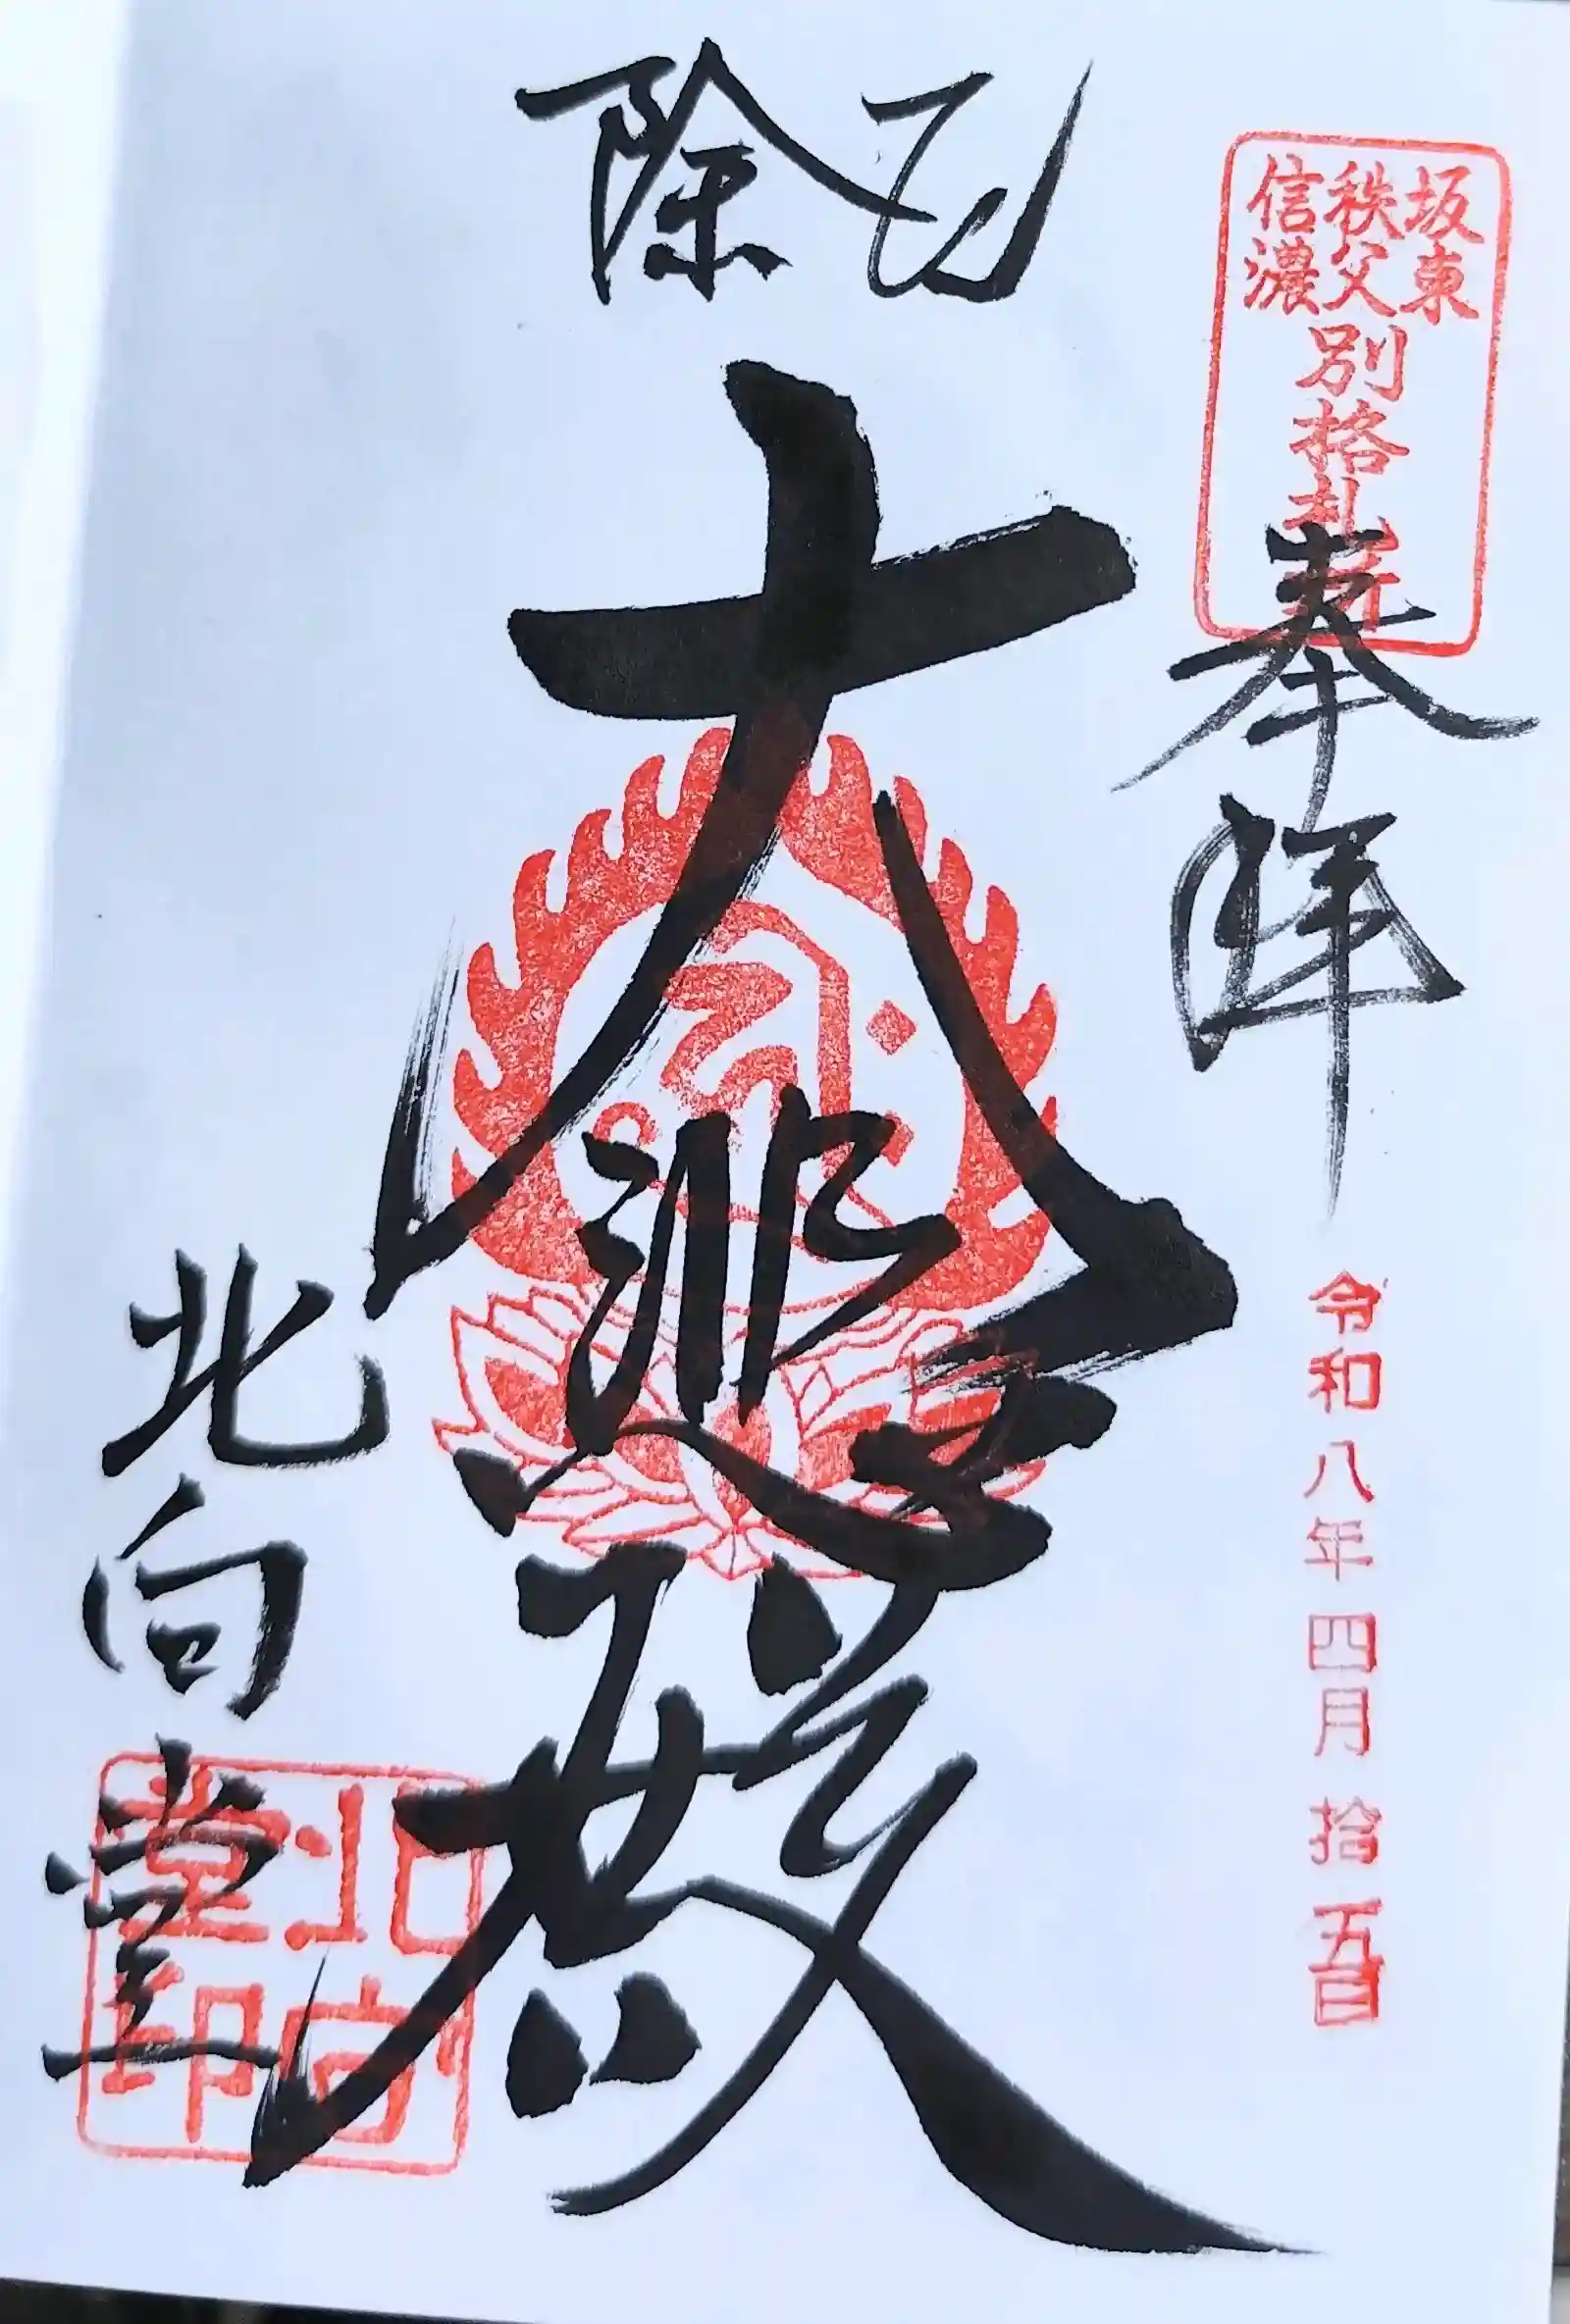 厄除
坂東
秩父
信濃
別格札所
奉拝
令和八年四月拾五日
大悲殿
北向堂
北向堂印